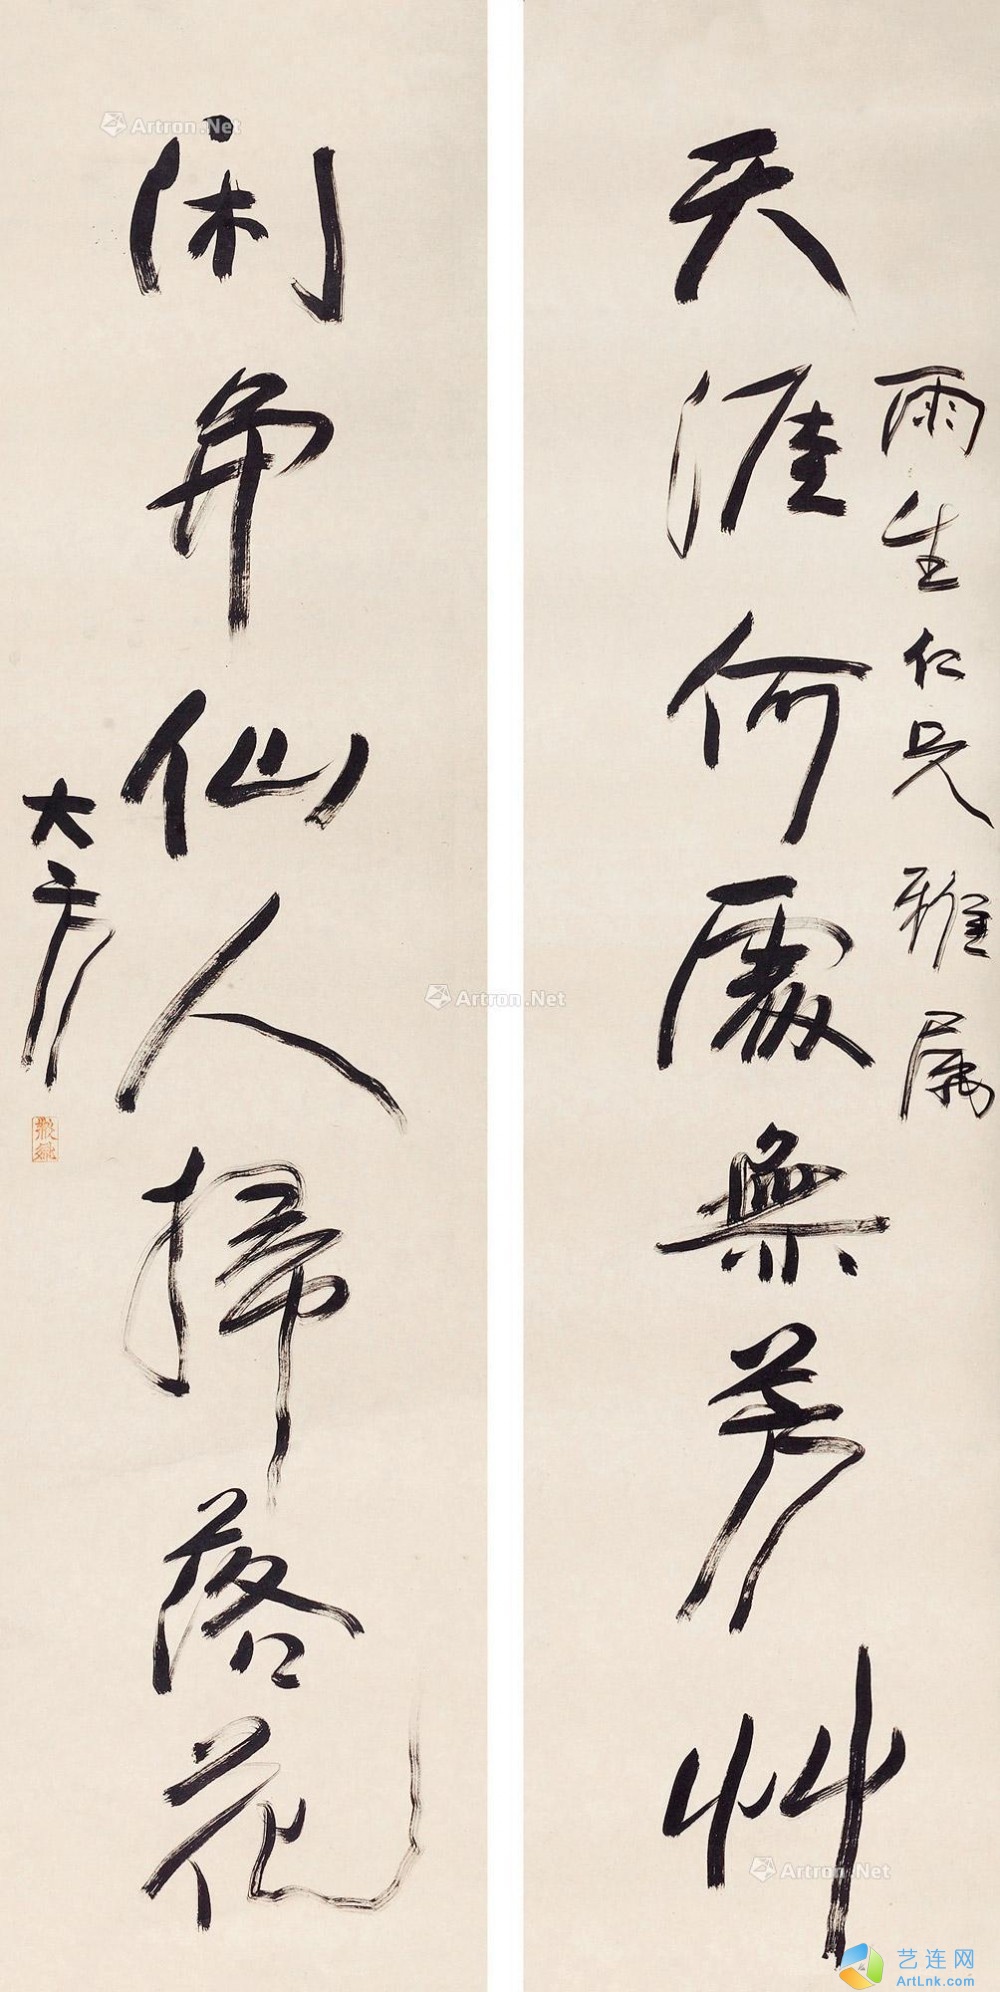 雨生仁兄雅属
天涯何處無芳艸
閑與仙人掃落花
大方
Artron.Net
Artron.Net
Artron.Net
艺连网
ArtLnk.com